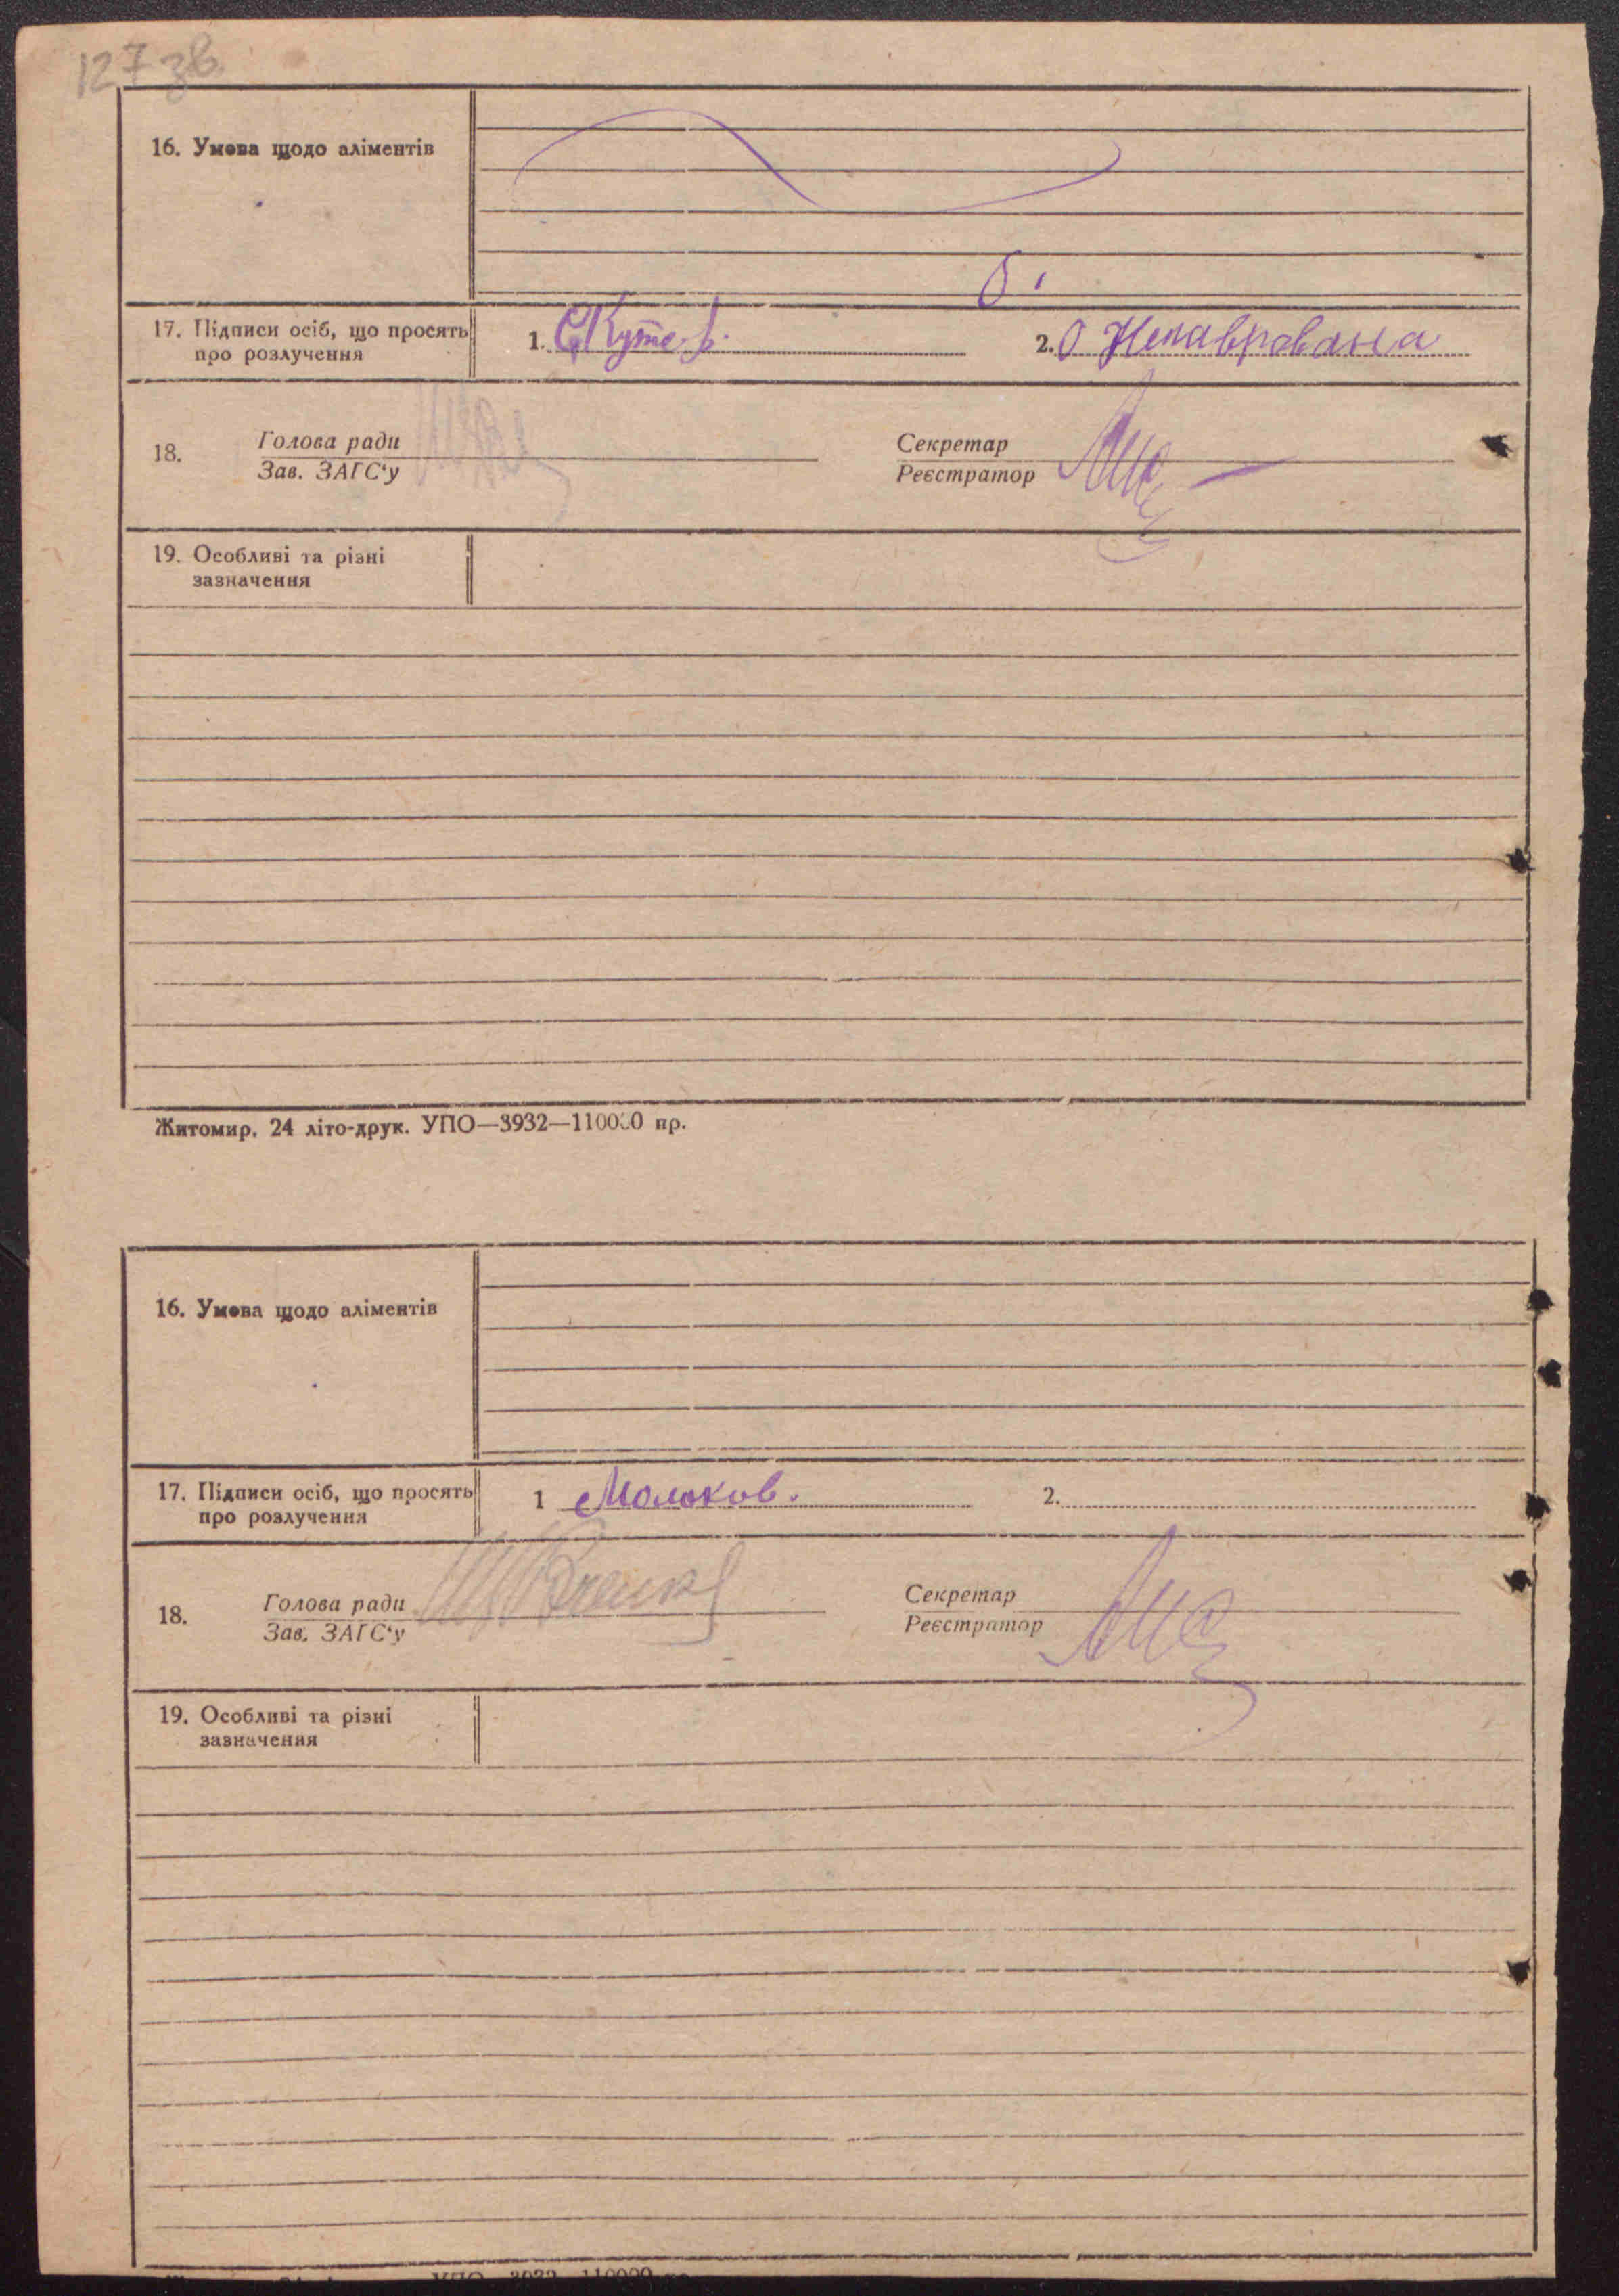 127 зв.
16. Умова щодо аліментів
17. Підписи осіб, що просять
про розлучення
1.
2. О
18.
Голова ради
Зав. ЗАГС'у
Секретар
Реєстратор
19. Особливі та різні
зазначення
Житомир. 24 літо-друк. УПО—3932—110000 пр.
16. Умова щодо аліментів
17. Підписи осіб, що просять
про розлучення
1 Молоков.
2.
18.
Голова ради
Зав. ЗАГС'у
Секретар
Реєстратор
19. Особливі та різні
зазначення
УПО 3932 110000